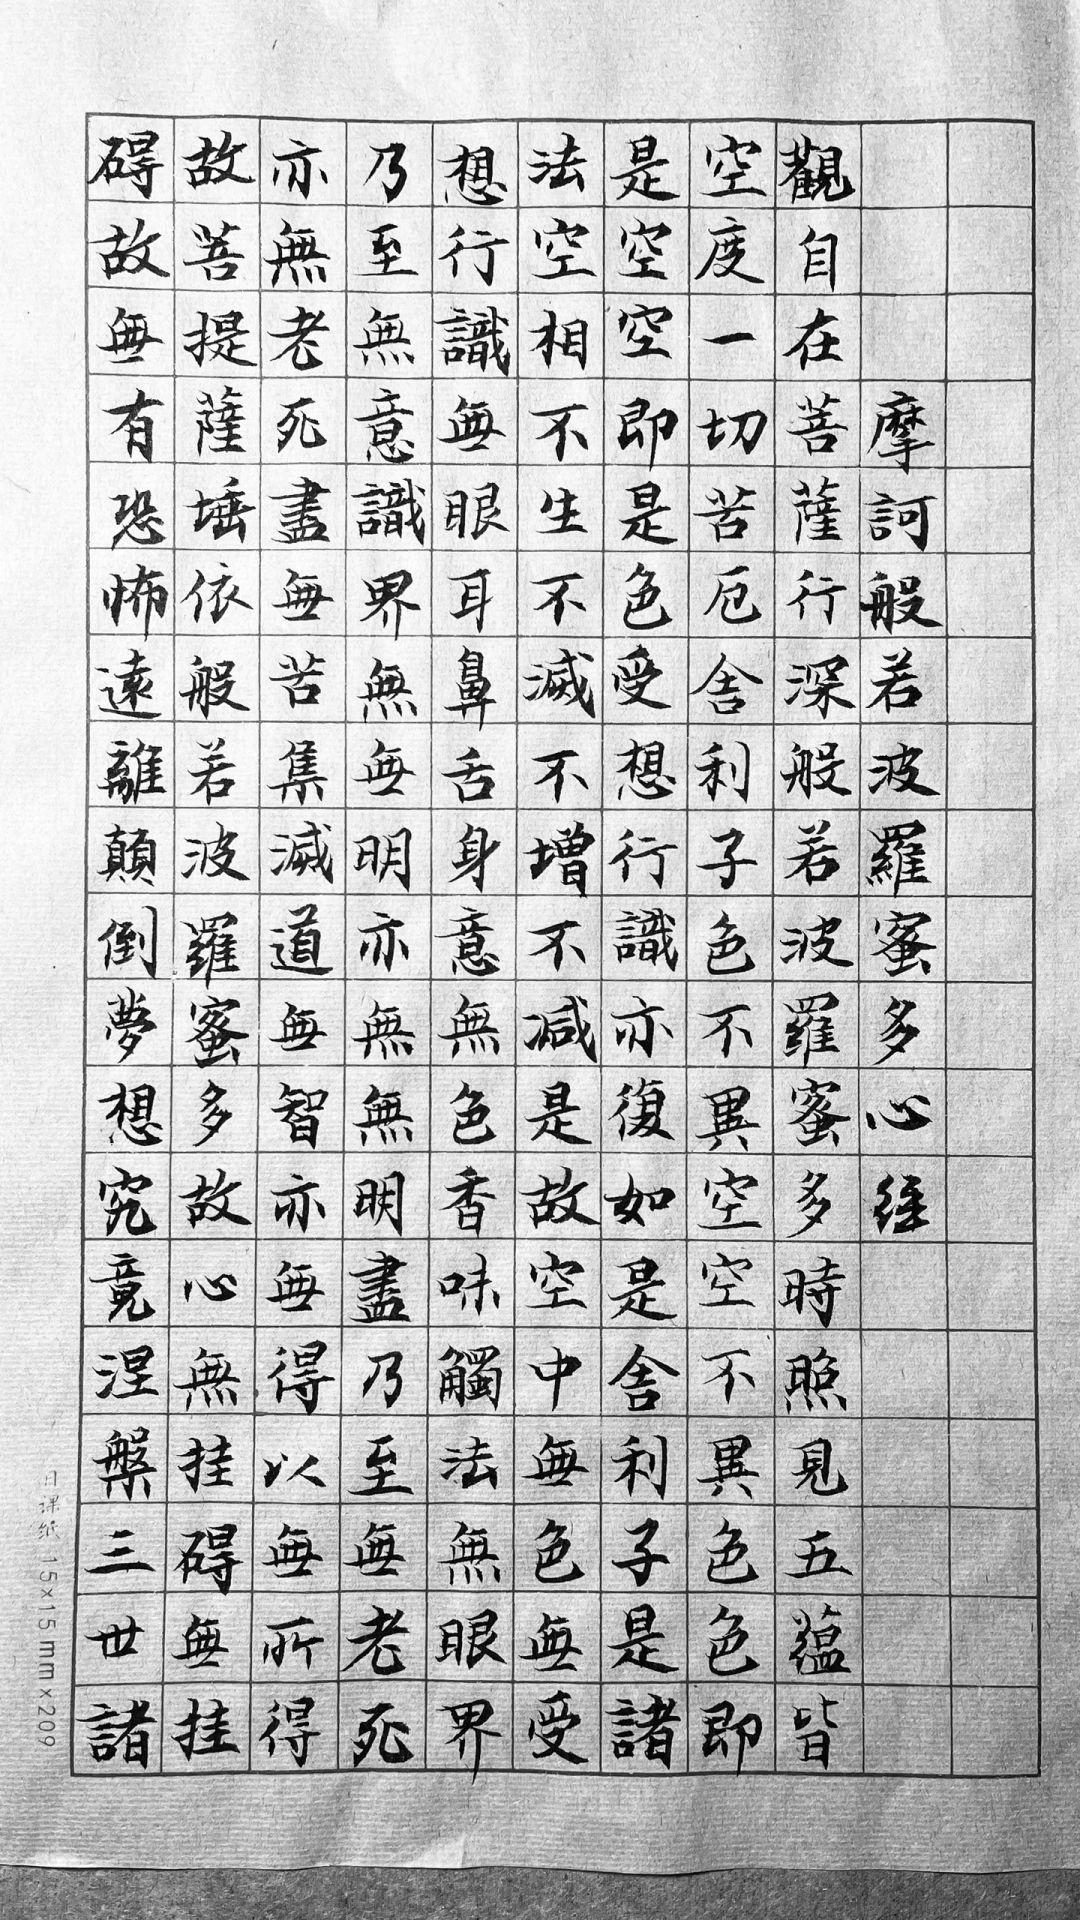 摩訶般若波羅蜜多心經
觀自在菩薩行深般若波羅蜜多時照見五蘊皆
空度一切苦厄舍利子色不異空空不異色色即
是空空即是色受想行識亦復如是舍利子是諸
法空相不生不滅不增不減是故空中無色無受
想行識無眼耳鼻舌身意無色香味觸法無眼界
乃至無意識界無無明亦無無明盡乃至無老死
亦無老死盡無苦集滅道無智亦無得以無所得
故菩提薩埵依般若波羅蜜多故心無挂碍無挂
碍故無有恐怖遠離顛倒夢想究竟涅槃三世諸
日课纸 15×15mm×209